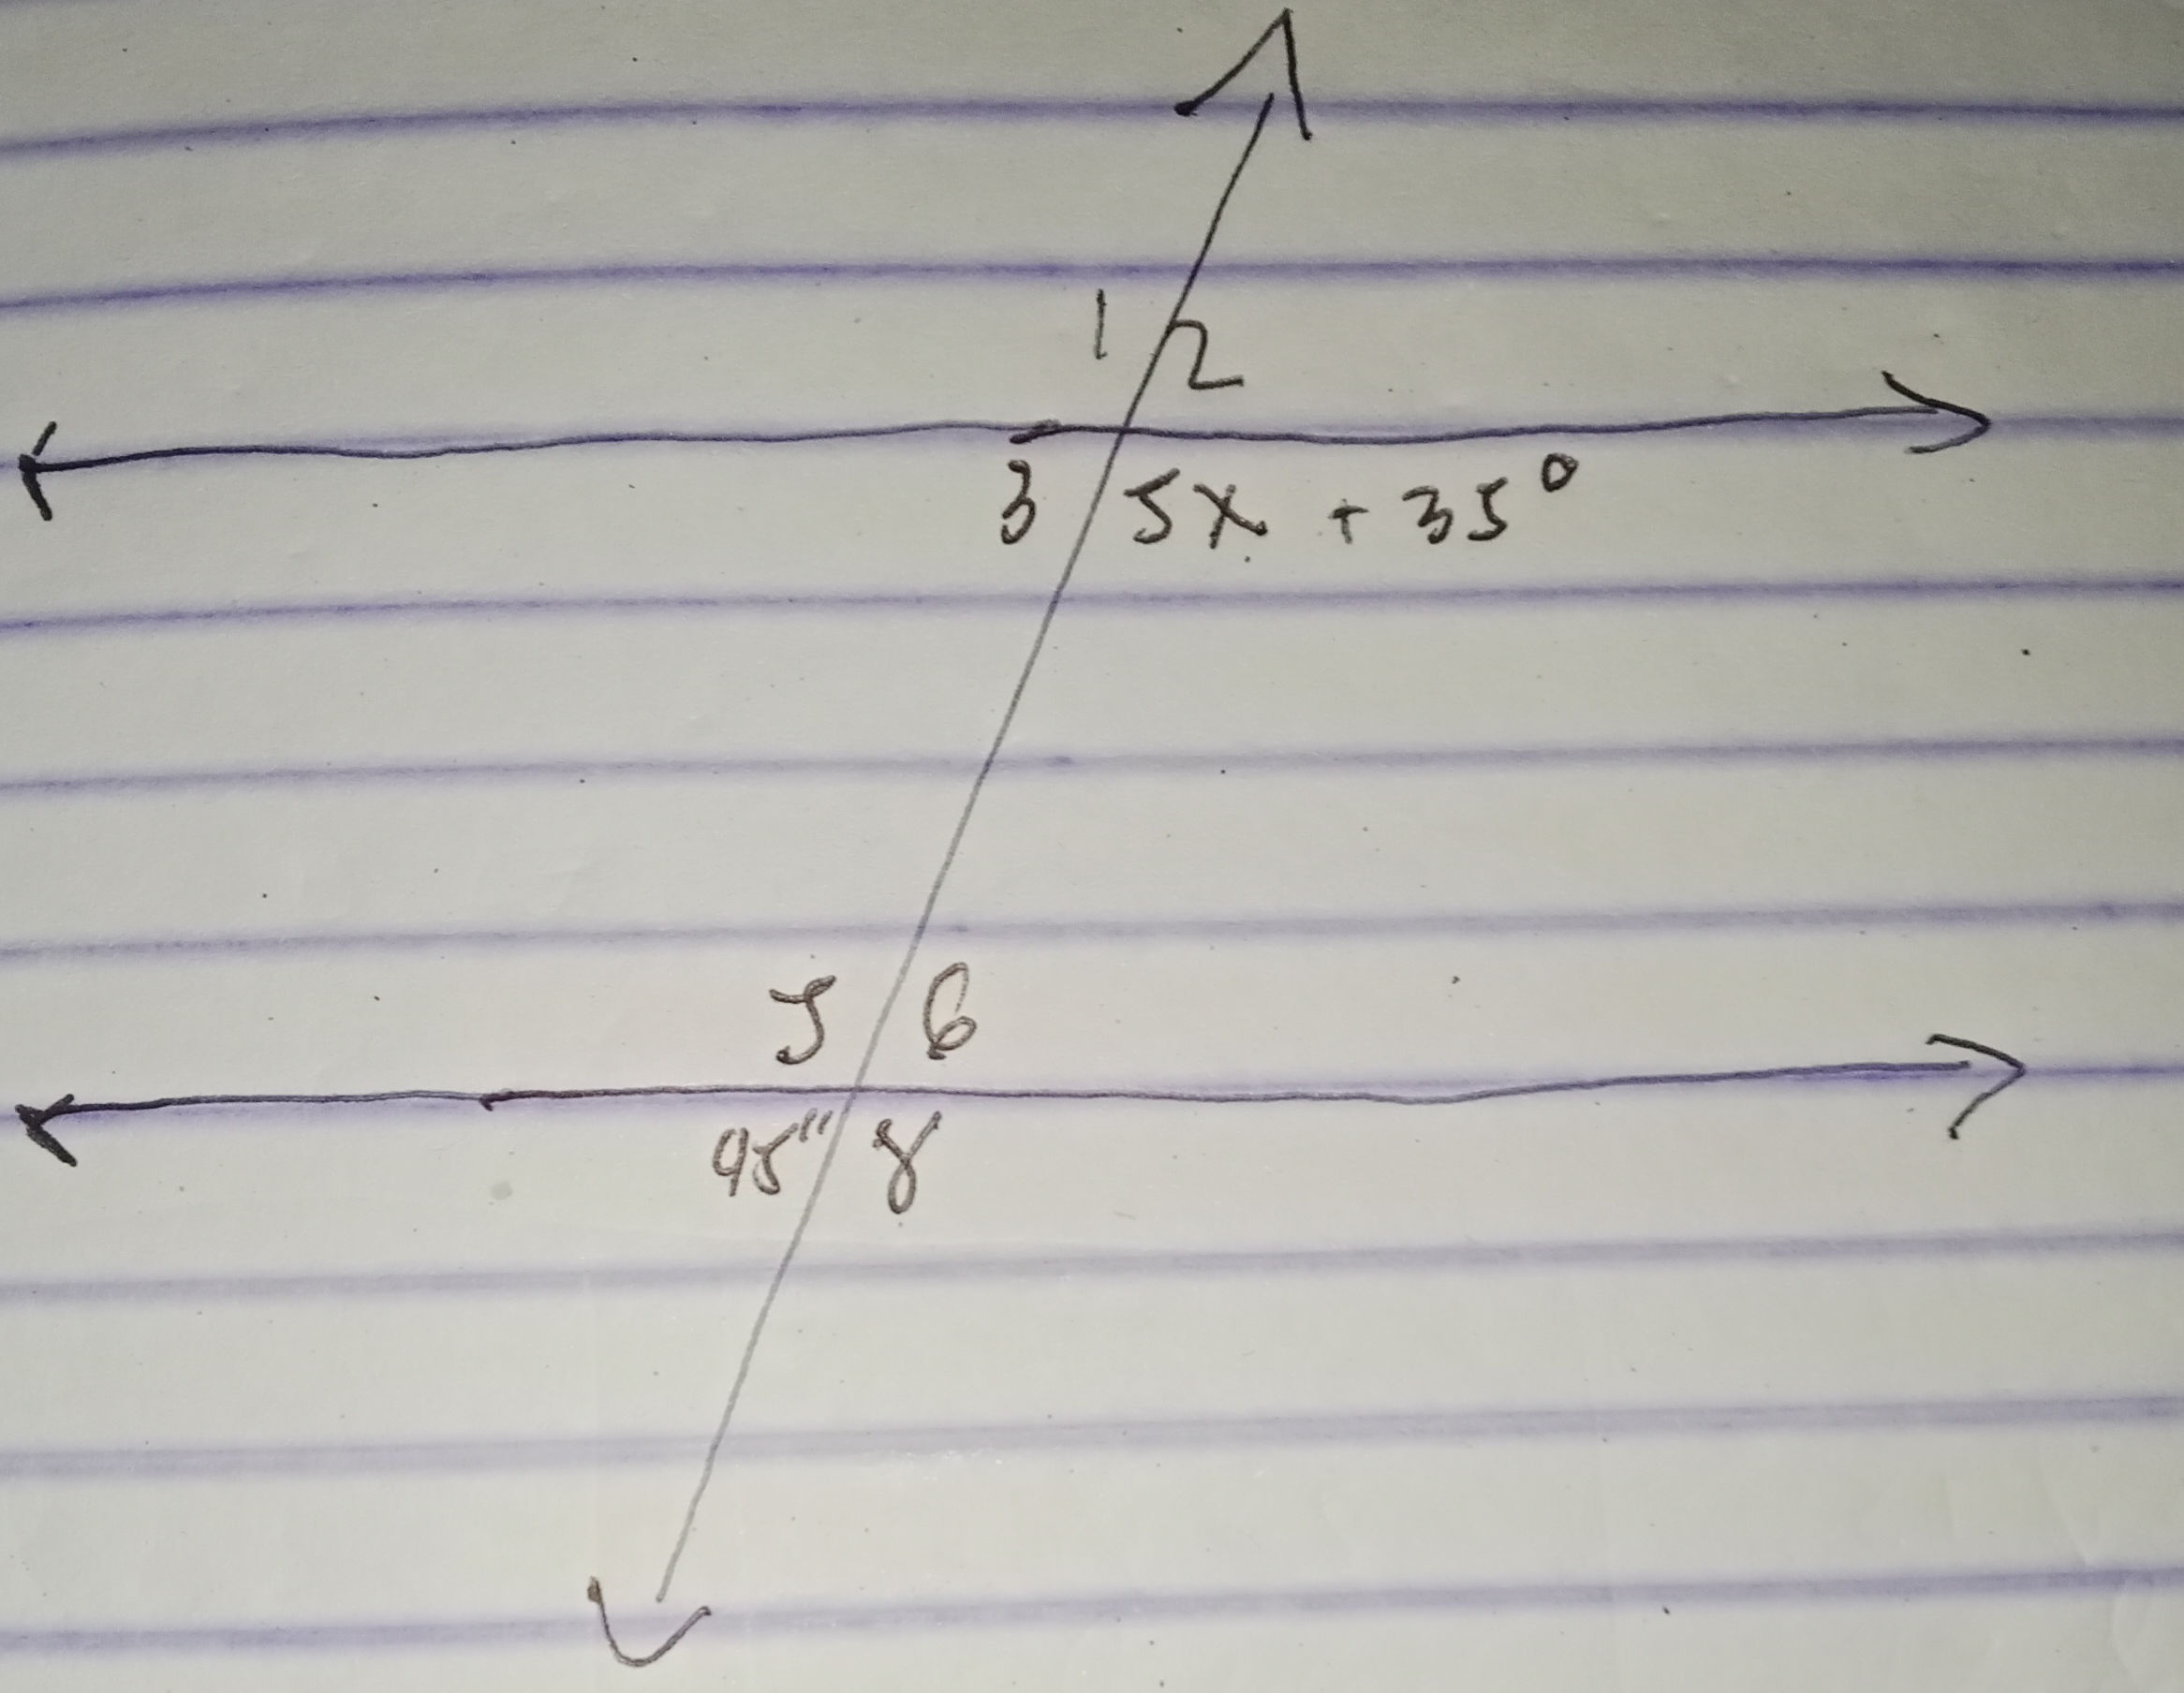 1 2
3 5x + 35°
5 6
95" 8